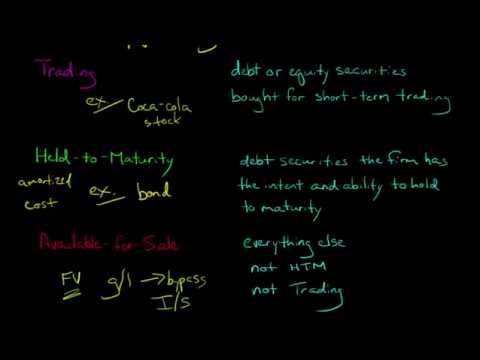 Trading
debt or equity securities
bought for short-term trading
ex Coca-cola
stock
Held-to-Maturity
debt securities the firm has
the intent and ability to hold
to maturity
amortized
cost
ex. bond
Available-for-Sale
everything else
not HTM
not Trading
FV g/l → bypass
I/S